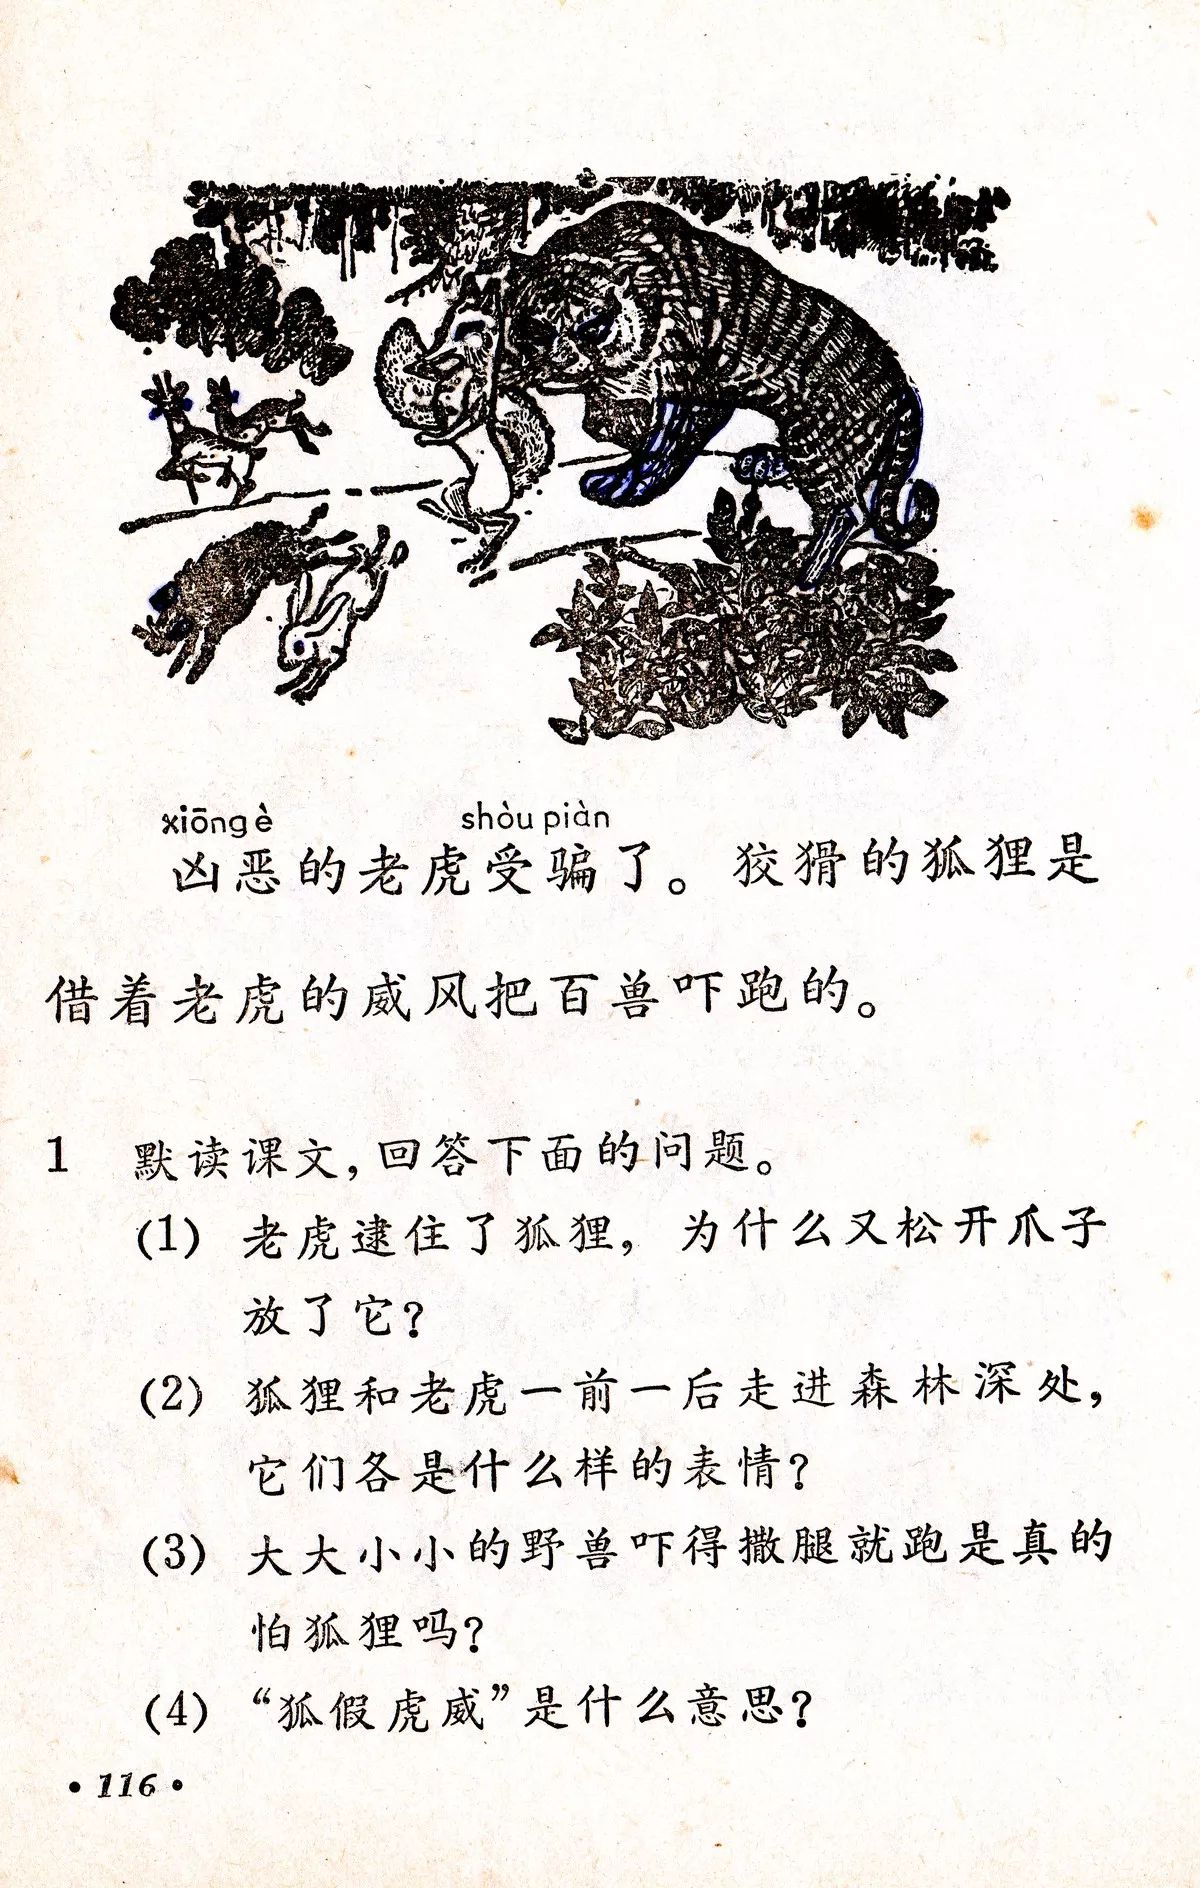 xiōng è shòu piàn
凶恶的老虎受骗了。狡猾的狐狸是
借着老虎的威风把百兽吓跑的。
1 默读课文,回答下面的问题。
(1) 老虎逮住了狐狸, 为什么又松开爪子
放了它?
(2) 狐狸和老虎一前一后走进森林深处,
它们各是什么样的表情?
(3) 大大小小的野兽吓得撒腿就跑是真的
怕狐狸吗?
(4) “狐假虎威”是什么意思?
• 116 •